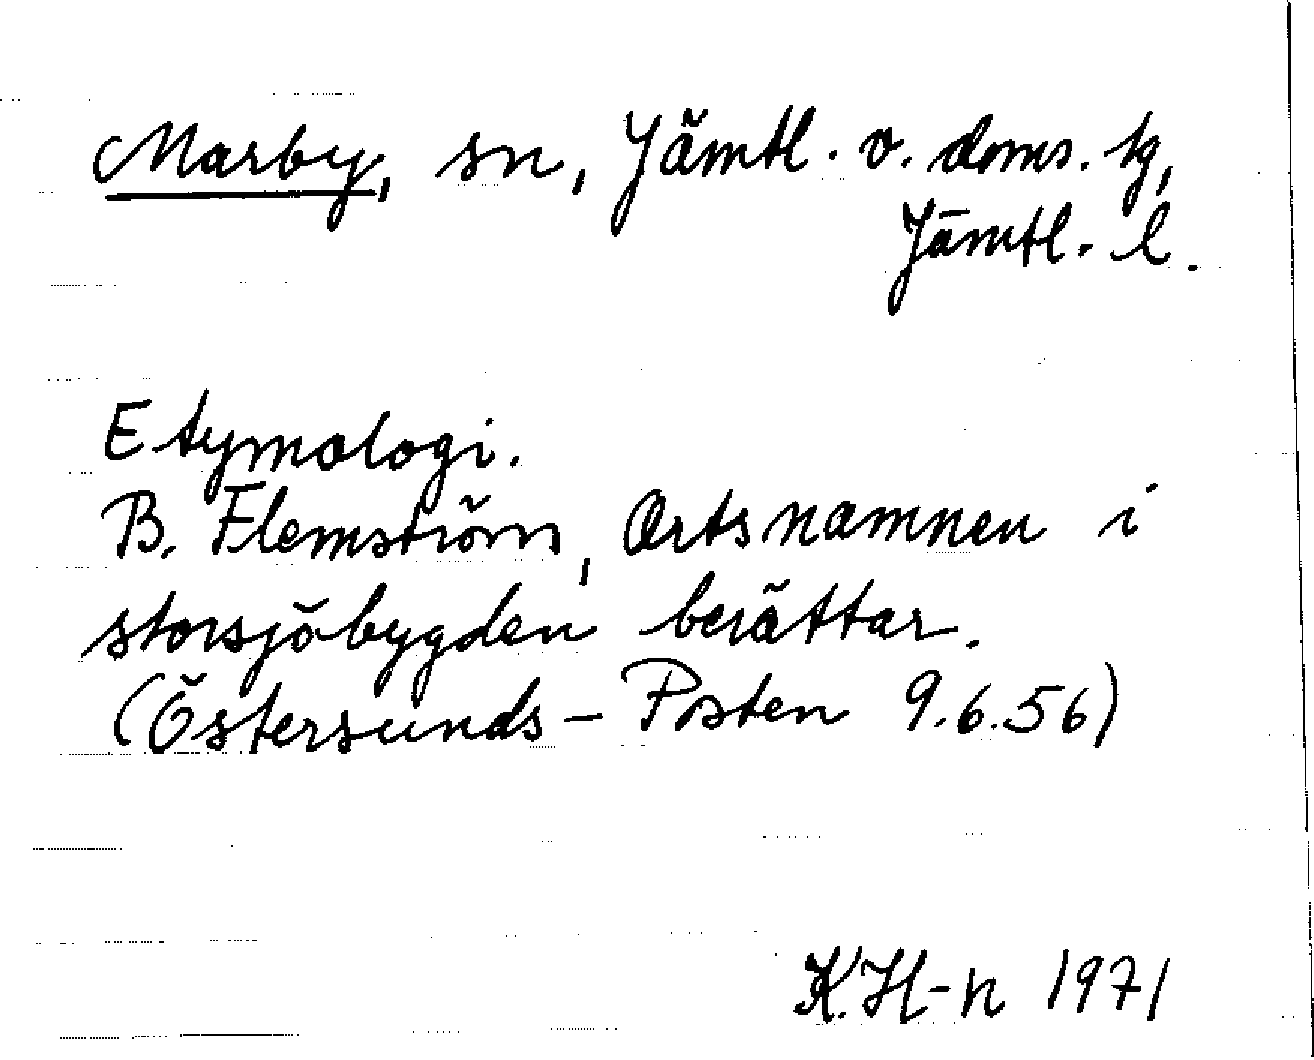 Marby, sn, Jämtl. v. doms. tg,
Jämtl. l.
Etymologi.
B. Flemström, Ortsnamnen i
storsjöbygden berättar.
(Östersunds-Posten 9.6.56)
K.H-n 1971